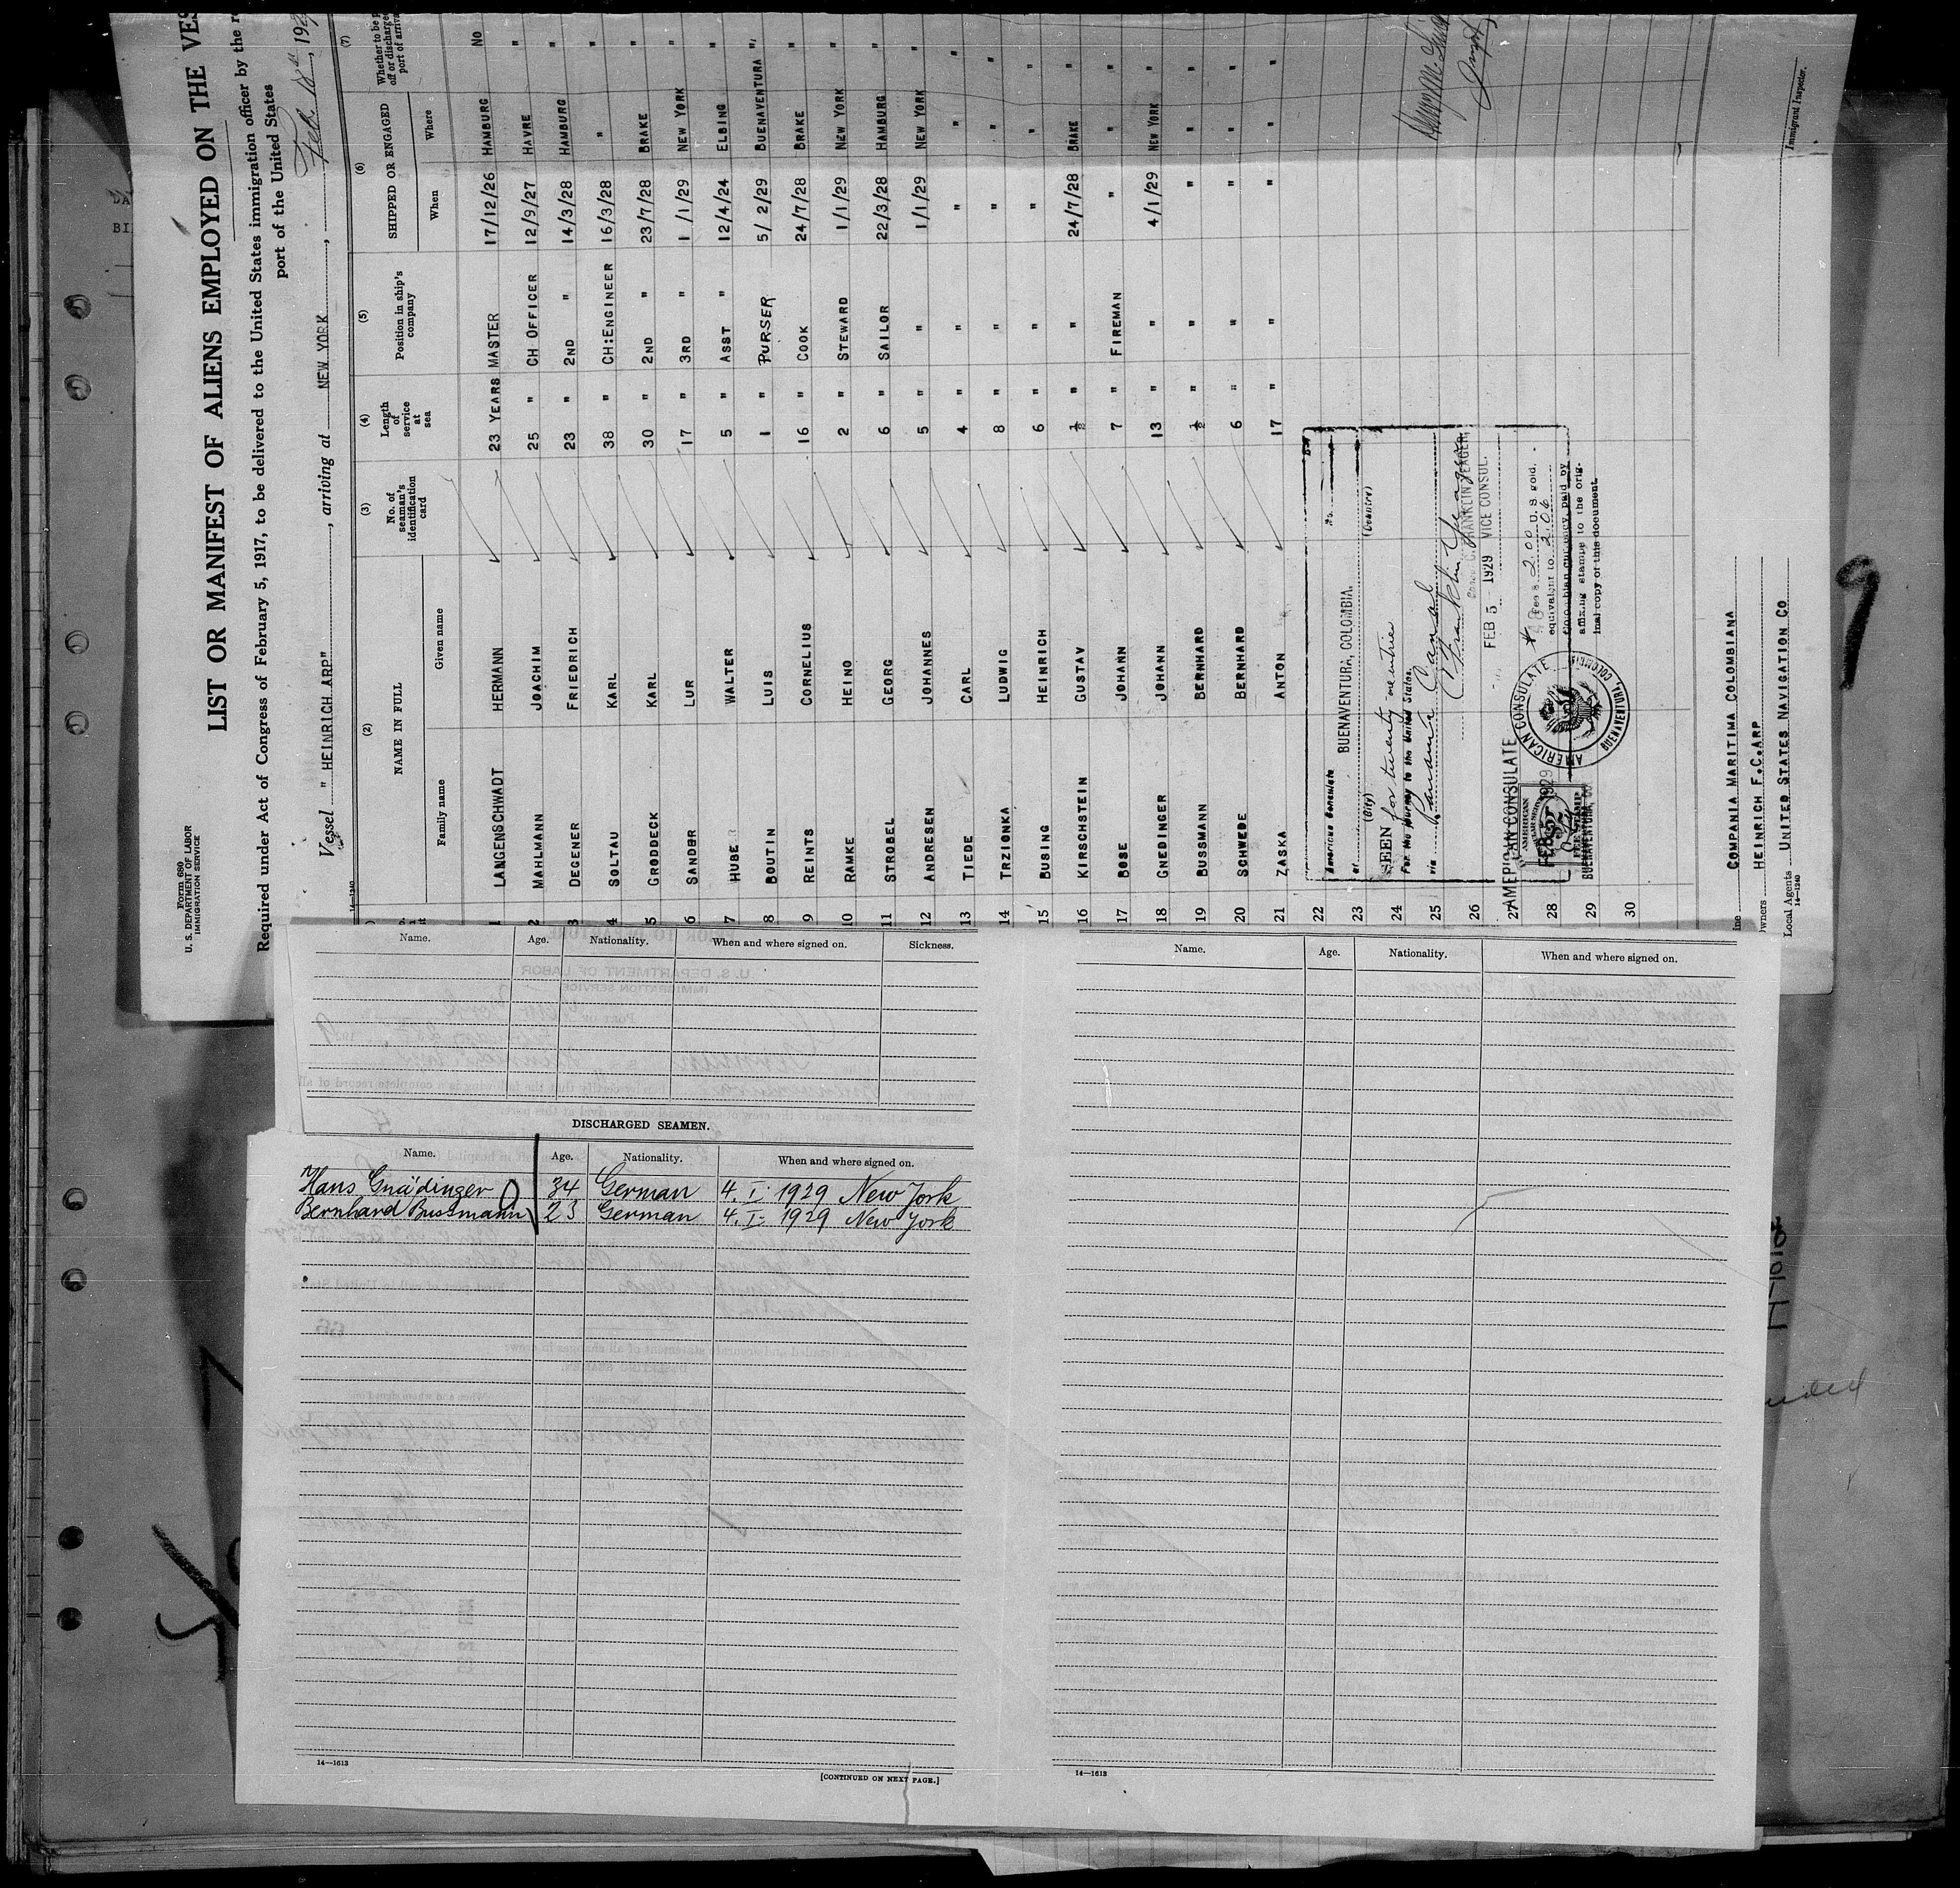 Form 680
U. S. DEPARTMENT OF LABOR
IMMIGRATION SERVICE
LIST OR MANIFEST OF ALIENS EMPLOYED ON THE VES
Required under Act of Congress of February 5, 1917, to be delivered to the United States immigration officer by the
port of the United States
Vessel " HEINRICH ARP" , arriving at NEW YORK , Feb. 18th , 192
14—1240
(2) (3) (4) (5) (6) (7)
NAME IN FULL
Family name Given name
No. of seaman's identification card
Length of service at sea
Position in ship's company
SHIPPED OR ENGAGED
When Where
Whether to be
off or discharged
port of arriva
1 LANGENSCHWADT HERMANN 23 YEARS MASTER 17/12/26 HAMBURG No
2 MAHLMANN JOACHIM 25 " CH OFFICER 12/9/27 HAVRE "
3 DEGENER FRIEDRICH 23 " 2ND " 14/3/28 HAMBURG "
4 SOLTAU KARL 38 " CH:ENGINEER 16/3/28 " "
5 GRODDECK KARL 30 " 2ND " 23/7/28 BRAKE "
6 SANDER LUR 17 " 3RD " 1 /1/29 NEW YORK "
7 HUBE WALTER 5 " ASST " 12/4/24 ELBING "
8 BOUTIN LUIS 1 " PURSER 5/ 2/29 BUENAVENTURA "
9 REINTS CORNELIUS 16 " COOK 24/7/28 BRAKE "
10 RAMKE HEINO 2 " STEWARD 1/1/29 NEW YORK "
11 STROBEL GEORG 6 " SAILOR 22/3/28 HAMBURG "
12 ANDRESEN JOHANNES 5 " " 1/1/29 NEW YORK "
13 TIEDE CARL 4 " " " " "
14 TRZIONKA LUDWIG 8 " " " " "
15 BUSING HEINRICH 6 " " " " "
16 KIRSCHSTEIN GUSTAV ½ " " 24/7/28 BRAKE "
17 BOSE JOHANN 7 " FIREMAN " " "
18 GNEDINGER JOHANN 13 " " 4/1/29 NEW YORK "
19 BUSSMANN BERNHARD ½ " " " " "
20 SCHWEDE BERNHARD 6 " " " " "
21 ZASKA ANTON 17 " " " " "
22
23
24
25
26
27
28
29
30
American Consulate No.
at BUENAVENTURA, COLOMBIA.
(City) (Country)
SEEN for twenty-one entries
For the journey to the United States,
via Panama Canal
C. Franklin Yeager
C. FRANKLIN YEAGER,
VICE CONSUL.
FEB 5 - 1929
AMERICAN CONSULATE
Fee $ 2.00 U. S gold.
equivalent to 2.06
Colombian currency, paid by
affixing stamps to the orig-
inal copy of this document.
AMERICAN CONSULATE
BUENAVENTURA COLOMBIA
FEB 5 1929
FEE STAMP
BUENAVENTURA, CO
COMPANIA MARITIMA COLOMBIANA
wners HEINRICH F.C.ARP
Local Agents UNITED STATES NAVIGATION CO
14—1240
Immigrant Inspector.
Name. Age. Nationality. When and where signed on. Sickness.
DISCHARGED SEAMEN.
Name. Age. Nationality. When and where signed on.
Hans Gnädinger 34 German 4. I. 1929 New York
Bernhard Bussmann 23 German 4. I. 1929 New York
14—1613
[CONTINUED ON NEXT PAGE.]
Name. Age. Nationality. When and where signed on.
14—1613
9